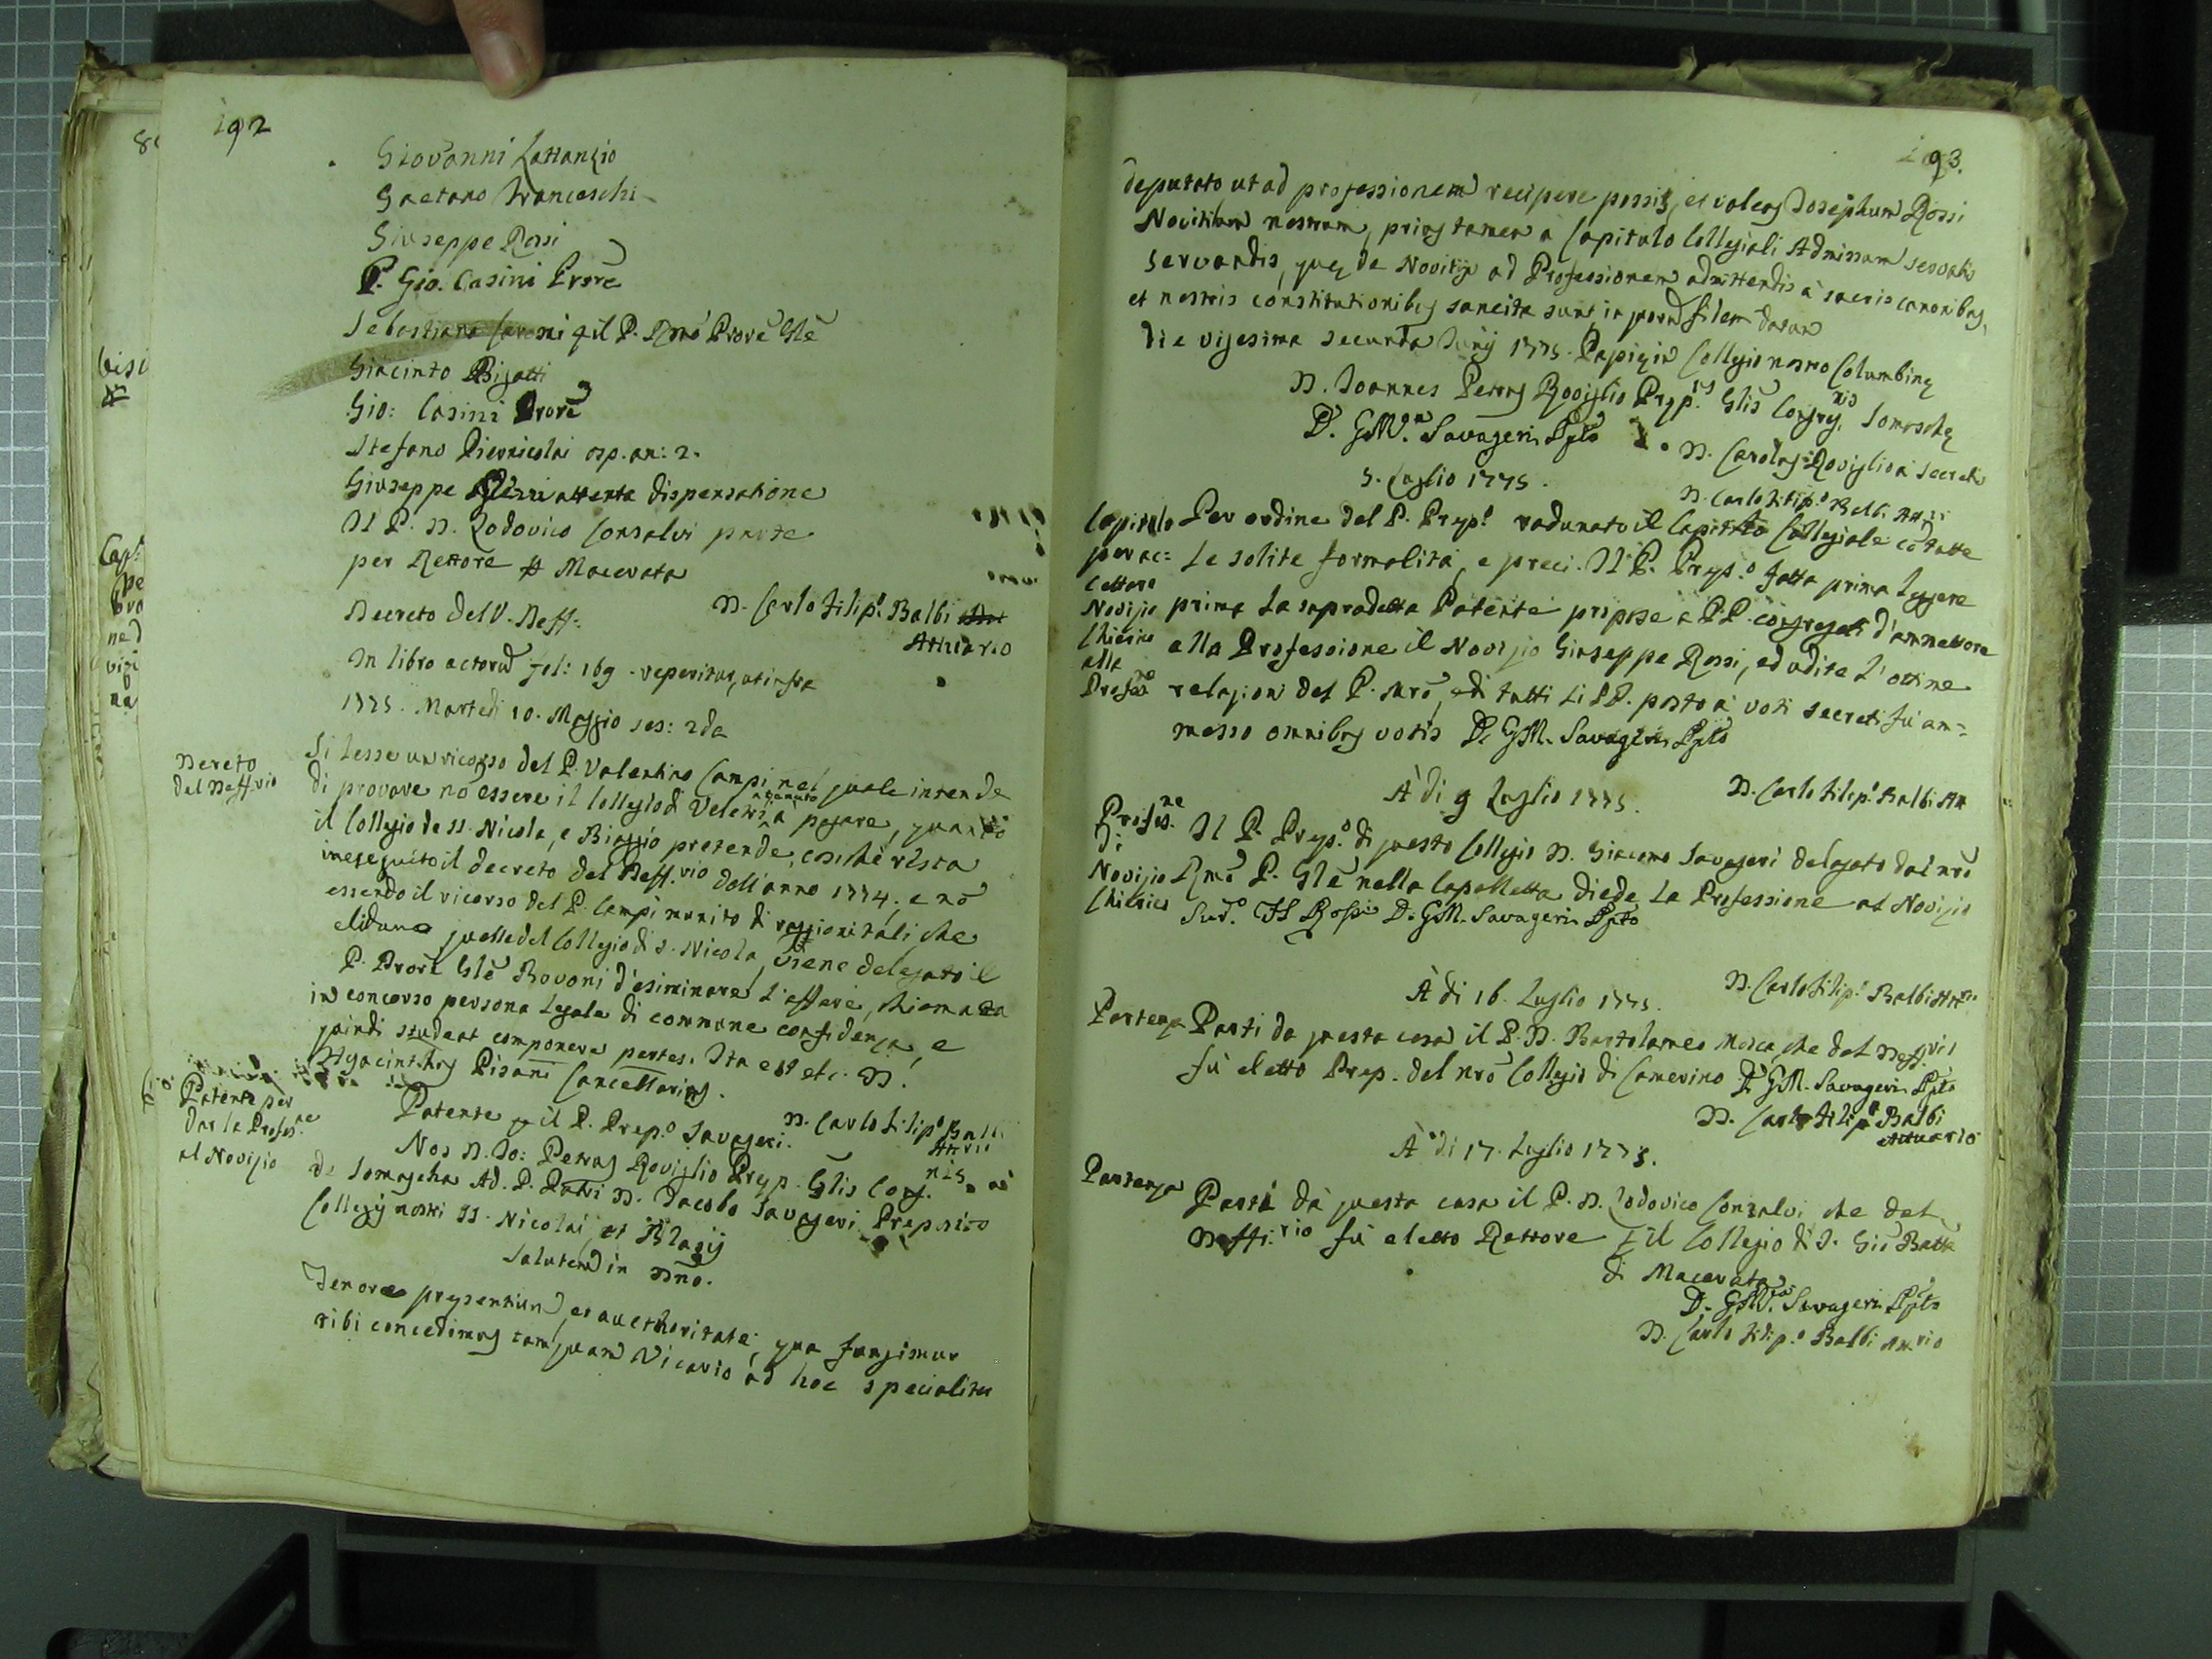 192
Giovanni Lattanzio
Gaetano Franceschi
Giuseppe Rossi
P. Gio. Casini Prore
Sebastiano p il P. Rmo Prove Gle
Giacinto Bigatti
Gio: Casini Prore
Stefano Piernicolai osp. an: 2.
Giuseppe attenta dispensatione
Il P. D. Lodovico Consalvi parte
per Rettore Macerata
D. Carlo Filip.o Balbi
Attuario
Decreto del V. Deff:
In libro actorũ fol: 169 - reperitur, ut infra
1775. Martedì 10. Maggio ses: 2da
Decreto
del Deff.rio
Si lesse un ricorso del P. Valentino Campi, nel quale intende
di provare nõ essere il Collegio di Velletri tenuto a pagare, quanto
il Collegio de SS. Nicola, e Biaggio pretende, cosichè resta
ineseguito il decreto del Deff.rio dell'anno 1774; e nõ
essendo il ricorso del P. Campi munito di raggioni tali che
elidano quelle del Collegio di S. Nicola, viene delegato il
P. Prore Gle Rovoni d'esiminare l'affare, chiamata
in concorso persona legale di commune confidenza, e
quindi studeat componere partes. Ita est etc. D.
Hyacinthus Pisani Cancellarius.
D. Carlo Filip.o Balbi
Att.rio
Patente per
dar la Profes.ne
al Novizio
Patente p il P. Prep.o Savageri.
Nos D. Jo: Petrus Roviglio Prep. Glis Cong.nis
de Somascha Ad. P. Patri D. Jacobo Savageri Preposito
Collegij nostri SS. Nicolai, et Blasij
Salutem in Dño.
Tenore presentium, et aucthoritate, qua fungimur
tibi concedimus tamquam Vicario ad hoc specialiter
193.
deputato, ut ad professionem recipere possis, et valeas Josephum Rossi
Novitium nostrum, prius tamen a Capitulo Collegiali Admissum servatis
servandis, que de Novitijs ad Professionem admittendis à sacris canonibus,
et nostris constitutionibus sancita sunt, in quorũ fidem datum
die vigesima secunda Junij 1775. Papie in Collegio nostro Columbine
D. Joannes Petrus Roviglio Prep.us Glis Congreg.nis Somasche
D. GM.a Savageri Ppto
D. Carolus Roviglio à secretis
D. Carlo Filip.o Balbi
5. Luglio 1775.
Capitolo
per ac=
cettare
Novizio
Chierico
alla
Profes.ne
Per ordine del P. Prep.o radunato il Capitolo Collegiale cõ tutte
le solite formalità, e preci. Il P. Prep.o fatta prima leggere
prima la sopradetta Patente propose a PP. congregati d'ammettere
alla Professione il Novizio Giuseppe Rossi, ed udite l'ottime
relazioni del P. Mro, e di tutti li PP. posto à voti secreti fù am=
messo omnibus votis D. GM. Savageri Ppto
D. Carlo Filip.o Balbi Att
À di 9 Luglio 1775.
Profes.ne
di
Novizio
Chierico
Il P. Prep.o di questo Collegio D. Giacomo Savageri delegato dal nrõ
Rmõ P. Gle nella Capelletta diede la Professione al Novizio
Sud.o Rossi D. GM. Savageri Ppto
D. Carlo Filip.o Balbi Att.rio
À di 16. Luglio 1775.
Partenza
Partì da questa casa il P. D. Bartolameo Mosca, che dal Deff.rio
fù eletto Prep. del nrõ Collegio di Camerino D. GM. Savageri Ppto
D. Carlo Filip.o Balbi
Attuario
À di 17. Luglio 1775.
Partenza
Partì dà questa casa il P. D. Lodovico Consalvi che dal
Deffi.rio fù eletto Rettore p il Collegio di S. Gio Batta
di Macerata
D. GM.a Savageri Ppto
D. Carlo Filip.o Balbi Att.rio